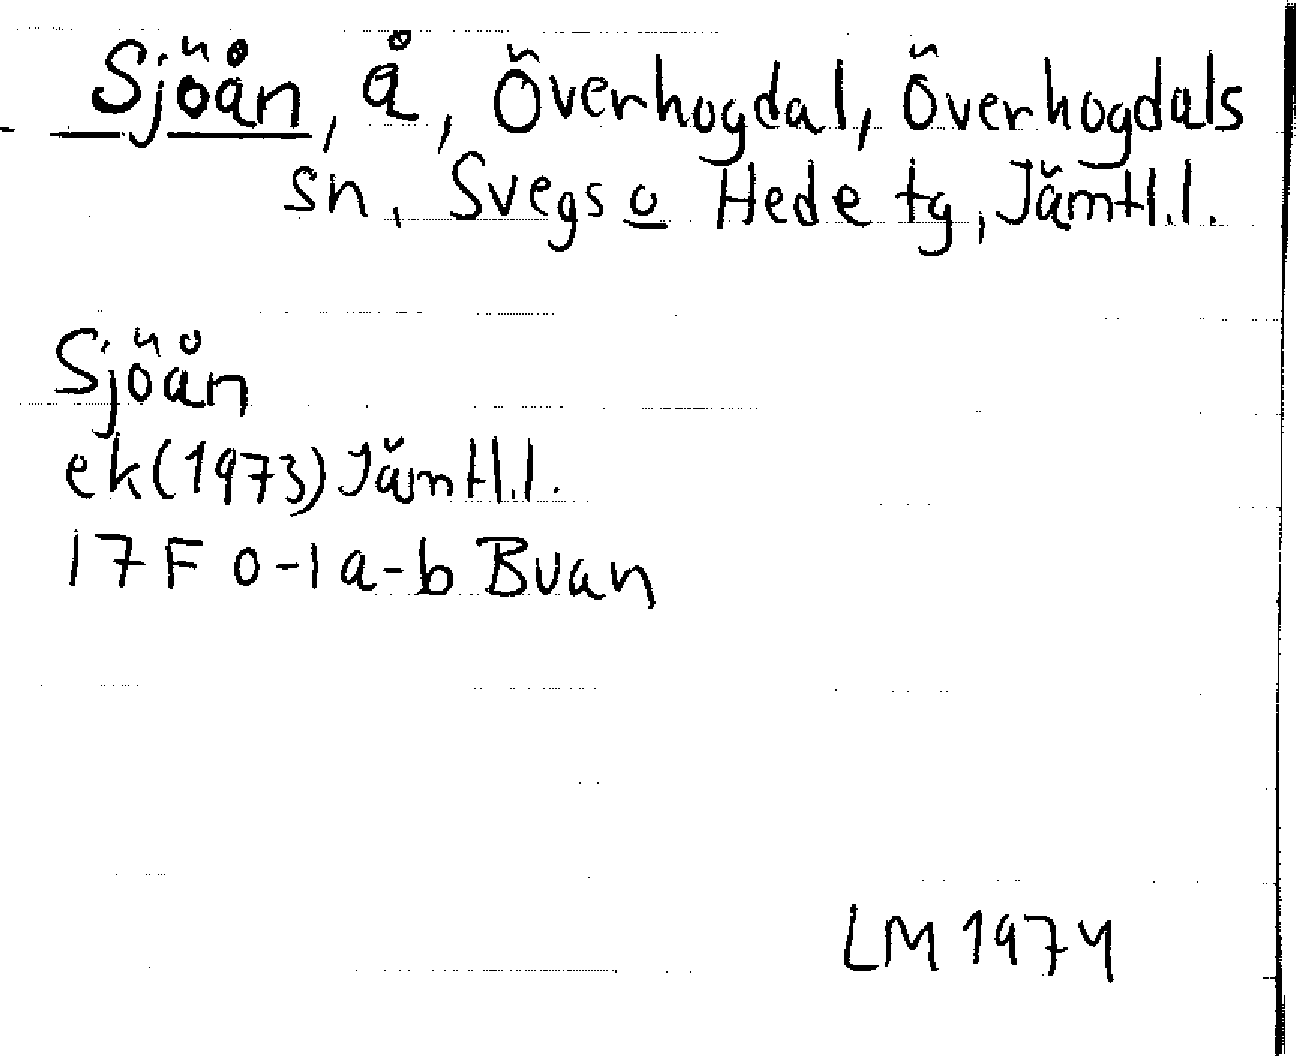 Sjöån, å, Överhogdal, Överhogdals
sn, Svegs o Hede tg, Jämtl.l.
Sjöån
ek(1973) Jämtl.l.
17F 0-1 a-b Bvan
LM 1974